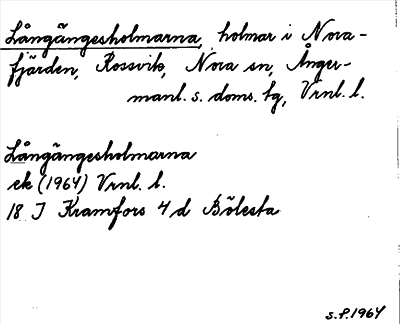 Långängesholmarna, holmar i Nora-
fjärden, Rossvik, Nora sn, Ånger-
manl. s. doms. tg, Vrnl. l.
Långängesholmarna
ek (1964) Vrnl. l.
18 J Kramfors 4 d Bölesta
s.f. 1964